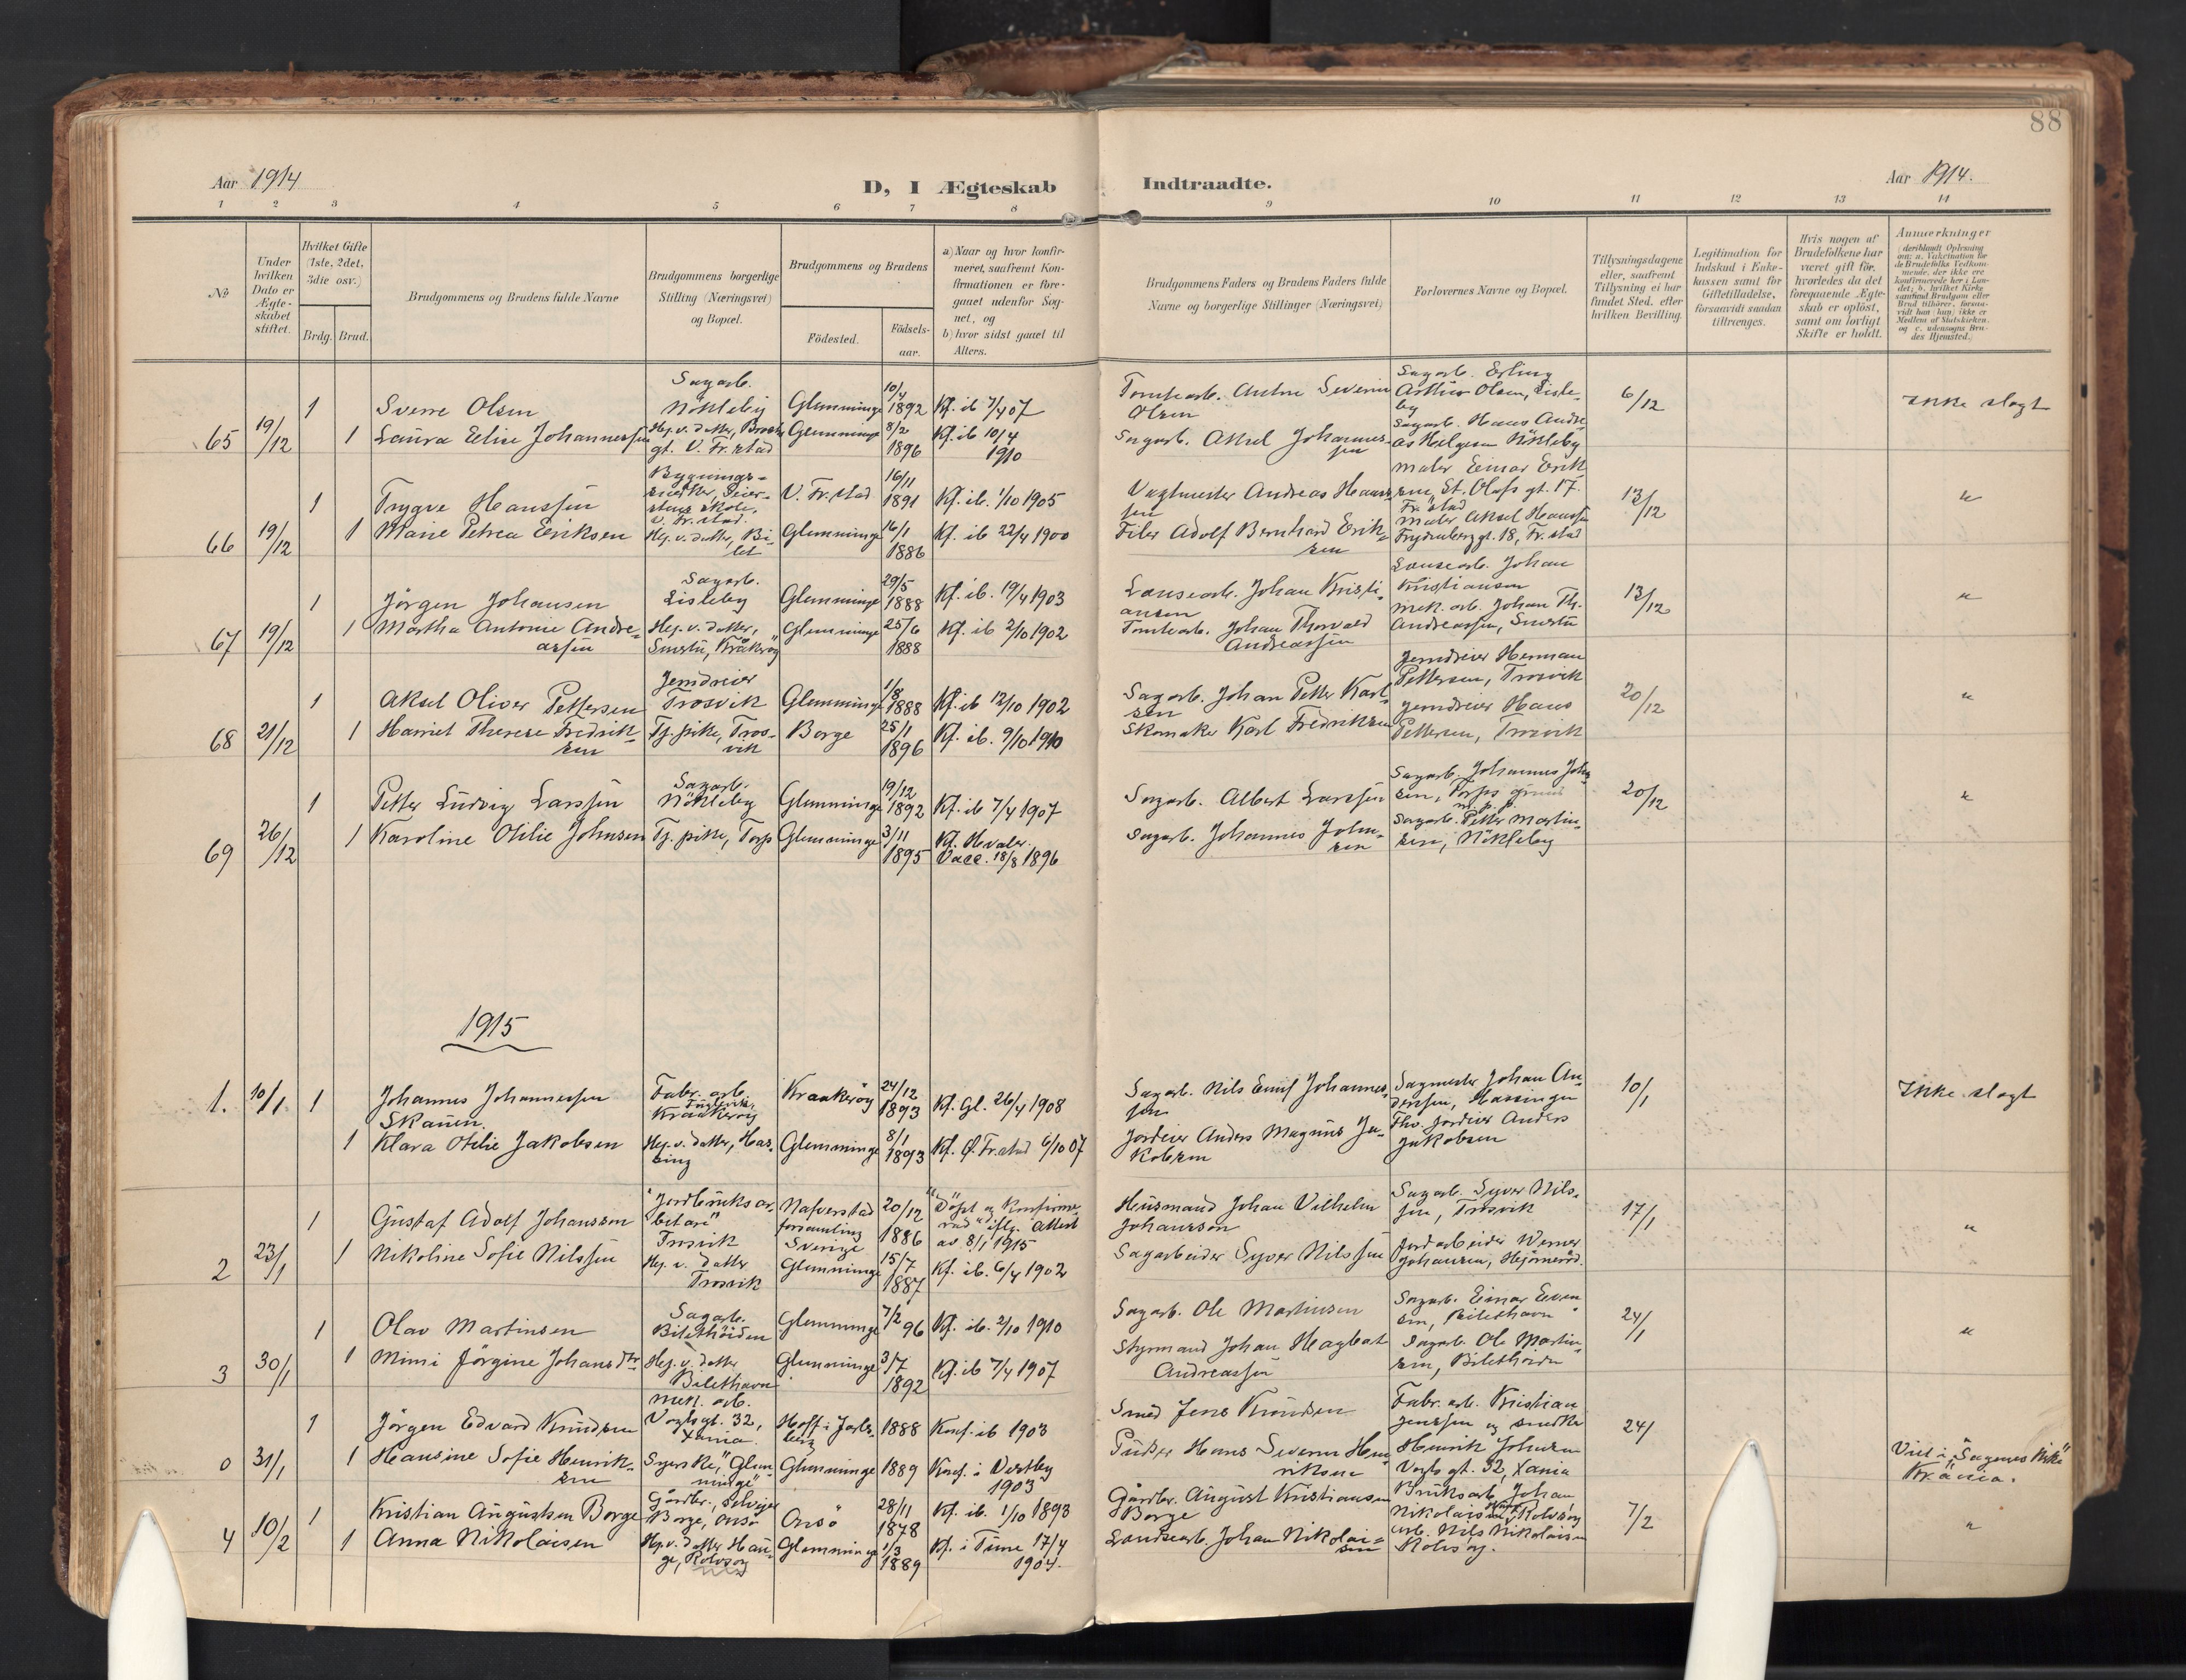 88
Aar 1914
D, I Ægteskab Indtraadte.
Aar 1914.
1 2 3 4 5 6 7 8 9 10 11 12 13 14
№
Under hvilken Dato er Ægteskabet stiftet.
Hvilket Gifte (1ste, 2det, 3die osv.)
Brdg. Brud.
Brudgommens og Brudens fulde Navne
Brudgommens borgerlige Stilling (Næringsvei) og Bopæl.
Brudgommens og Brudens
Födested.
Födsels-aar.
a) Naar og hvor konfir-
meret, saafremt Kon-
firmationen er fore-
gaaet udenfor Sog-
net, og
b) hvor sidst gaaet til
Alters.
Brudgommens Faders og Brudens Faders fulde
Navne og borgerlige Stillinger (Næringsvei)
Forlovernes Navne og Bopæl.
Tillysningsdagene
eller, saafremt
Tillysning ei har
fundet Sted, efter
hvilken Bevilling.
Legitimation for
Indskud i Enke-
kassen samt for
Giftetilladelse,
forsaavidt saadan
tiltrænges.
Hvis nogen af
Brudefolkene har
været gift för,
hvorledes da det
foregaaende Ægte-
skab er oplöst,
samt om lovligt
Skifte er holdt.
Anmærkninger
(deriblandt Oplysning
om: a. Vakcination for
de Brudefolks Vedkom-
mende, der ikke ere
konfirmerede her i Lan-
det; b. hvilket Kirke-
samfund Brudgom eller
Brud tilhører, forsaa-
vidt han (hun) ikke er
Medlem af Statskirken,
og c. udensogns Bru-
des Hjemsted.)
65 19/12
1 Sverre Olsen Sagarb. Nökleby Glemminge 10/4 1892 Kf. ib 7/4 07 Tomtearb. Anton Severin Olsen Sagarb. Erling Arthur Olsen, Lisleby 6/12 Ikke slægt
1 Laura Elise Johannessen Hej. v. datter, Brochs gt. V. Fr.stad Glemminge 8/2 1896 Kf. ib 10/4 1910 Sagarb. Aksel Johannessen Sagarb. Hans Andreas Helgesen Nökleby
66 19/12
1 Trygve Hanssen Bygningssnedker, Seierstens skole, V. Fr.stad. V. Fr.stad 16/11 1891 Kf. ib. 1/10 1905 Vagtmester Andreas Hanssen Maler Einar Eriksen, St. Olafs gt. 17. Fr.stad 13/12 "
1 Marie Petrea Eriksen Hej. v. datter, Bilet Glemminge 16/1 1886 Kf. ib 22/4 1900 Filer Adolf Bernhard Eriksen Maler Aksel Hanssen Frydenberg gt. 18, Fr.stad
67 19/12
1 Jörgen Johansen Sagarb. Lisleby Glemminge 29/5 1888 Kf. ib. 19/4 1903 Lansearb. Johan Kristiansen Lansearb. Johan Kristiansen 13/12 "
1 Martha Antonie Andreassen Hej. v. datter, Smertu, Kråkerøy Glemminge 25/6 1888 Kf. ib 2/10 1902 Tomtearb. Johan Thorvald Andreassen Mek. arb. Johan Th. Andreassen, Smertu
68 21/12
1 Aksel Oliver Pettersen Jerndreier Trosvik Glemminge 1/8 1888 Kf. ib 12/10 1902 Sagarb. Johan Petter Karlsen Jerndreier Herman Pettersen, Trosvik 20/12 "
1 Harriet Therese Fredriksen Tj. pike, Trosvik Borge 25/1 1896 Kf. ib. 9/10 1910 Skomaker Karl Fredriksen Jerndreier Hans Pettersen, Trosvik
69 26/12
1 Petter Ludvig Larssen Sagarb. Nökleby Glemminge 19/12 1892 Kf. ib 7/4 1907 Sagarb. Albert Larssen Sagarb. Johannes Johnsen, Torps 20/12 "
1 Karoline Otilie Johnsen Tj. pike, Torp Glemminge 3/11 1895 Kf. Hvaler. Vacc. 18/8 1896 Sagarb. Johannes Johnsen Sagarb. Petter Martinsen, Nökleby
1915
1. 10/1
1 Johannes Johannessen Skauen. Fabr. arb. Kraakeröy Kraakeröy 24/12 1893 Kf. Gl. 26/4 1908 Sagarb. Nils Emil Johannessen Sagmester Johan Andersen, Hassingen 10/1 Ikke slægt
1 Klara Otilie Jakobsen Hej. v. datter, Hassing Glemminge 8/1 1893 Kf. Ø. Fr.stad 6/10 07 Jordeier Anders Magnus Jakobsen Fhv. Jordeier Anders Jakobsen
2 23/1
1 Gustaf Adolf Johansson "Jordbruksarbetare" Trosvik Nafverstad forsamling Sverige 20/12 1886 "Döpt og konfirmerad" iflg. attest av 8/1 1915 Husmand Johan Vilhelm Johansson Sagarb. Syver Nilssen, Trosvik 17/1 "
1 Nikoline Sofie Nilssen Hej. v. datter Trosvik Glemminge 15/7 1887 Kf. ib. 6/4 1902 Sagarbeider Syver Nilssen Jordarbeider Werner Johansen, Hejörneröd.
3 30/1
1 Olav Martinsen Sagarb. Bilethöiden Glemminge 7/2 96 Kf. ib. 2/10 1910 Sagarb. Ole Martinsen Sagarb. Einar Evensen, Bilethavn 24/1 "
1 Mimi Jörgine Johansdtr Hej. v. datter Bilethavn Glemminge 3/7 1892 Kf. ib 7/4 1907 Styrmand Johan Hagbart Andreassen Sagarb. Ole Martinsen, Bilethöiden
0 31/1
1 Jörgen Edvard Knudsen Mek. arb. Vogts gt. 32, Xania. Hoff i Jarlsberg 1888 Konf. ib 1903 Smed Jens Knudsen Fabr. arb. Kristian Jenssen og snedker 24/
1 Hansine Sofie Henriksen Syerske, "Glemminge" Glemminge 1889 Konf. i Vestby 1903 Pudser Hans Severin Henriksen Henrik Johnsen Vogts gt. 32, Xania Viet i "Sagenes Kirke" Kr.ania.
4 10/2
1 Kristian Augustsen Borge Gårdbr., selveier Borge, Onsö Onsö 28/11 1878 Kf. ib. 1/10 1893 Gårdbr. August Kristiansen Borge Bruksarb. Johan Nikolaisen, Rolvsöy 7/2 "
1 Anna Nikolaisen Hej. v. datter Hauge, Rolvsöy Glemminge 1/3 1889 Kf. i Tune 17/4 1904. Landsearb. Johan Nikolaisen arb. Nils Nikolaisen Rolvsöy.